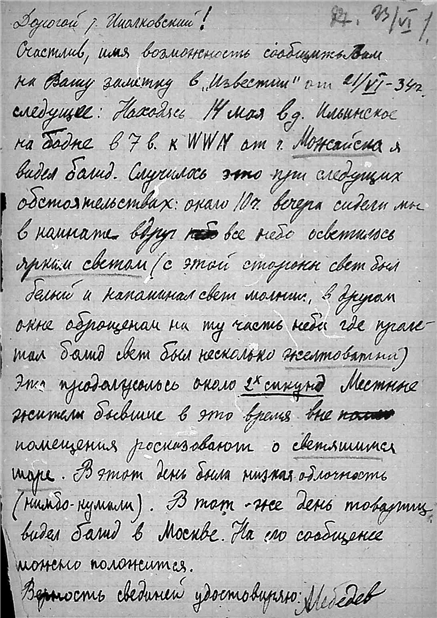 Дорогой т. Циолковский!
23/VI
Счастлив, имея возможность сообщить Вам
на Вашу заметку в „Известии" от 21/VI-34г.
следущее: Находясь 14 мая в д. Ильинское
в 7 в. к WWN от г. Можайска я
видел болид. Случилось это при следущих
обстоятельствах: около 10ч. вечера сидели мы
в комнате вдруг все небо осветилось
ярким светом (с этой стороны свет был
белый и напоминал свет молнии, в другом
окне оброщеном на ту часть неба где проле-
тал болид свет был несколько желтоватый)
Это продолжолось около 2х сикунд Местные
жители бывшие в это время вне
помещения росказовают о светяшимся
шаре. В этот день была низкая облочность
(нимбо-кумали). В тот-же день товарищ
видел болид в Москве. На его сообщение
можно положится.
Верность свединей удостоверяю: А Лебедев